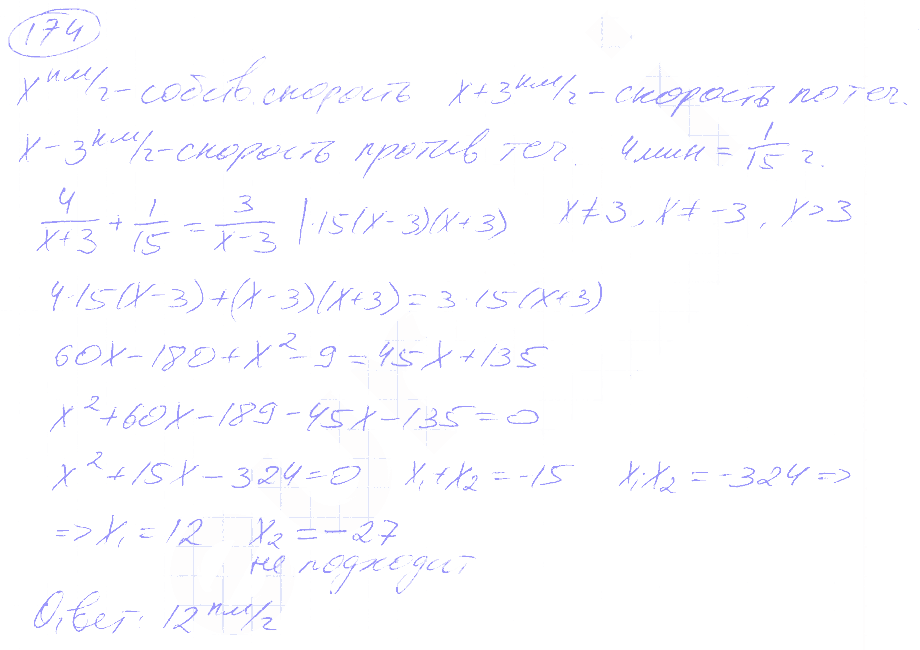 174
x км/ч - собств. скорость x+3 км/ч - скорость по теч.
x-3 км/ч - скорость против теч. 4 мин = 1/15 ч.
4/(x+3) + 1/15 = 3/(x-3) |·15(x-3)(x+3) x≠3, x≠-3, x>3
4·15(x-3)+(x-3)(x+3)=3·15(x+3)
60x-180+x²-9=45x+135
x²+60x-189-45x-135=0
x²+15x-324=0 x₁+x₂=-15 x₁x₂=-324 =>
=> x₁=12 x₂=-27
не подходит
Ответ: 12 км/ч